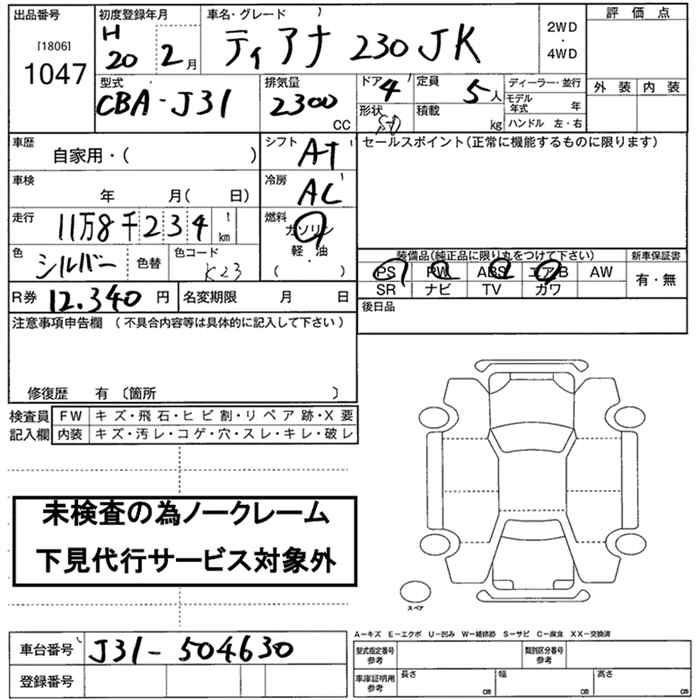 出品番号 初度登録年月 車名・グレード 評価点
[1806] H 2WD
1047 20年 2月 ティアナ 230JK ・
4WD
型式 排気量 ドア 4 定員 5人 ディーラー・並行 外装 内装
CBA-J31 2300 CC 形状 積載 kg モデル年式 年
ハンドル 左・右
車歴 自家用・( ) シフト AT セールスポイント(正常に機能するものに限ります)
車検 年 月( 日) 冷房 AC
走行 11万8千234 km 燃料 ガソリン
軽・油
( )
色 シルバー 色替 色コード K23 装備品(純正品に限り丸をつけて下さい) 新車保証書
PS PW ABS エアB AW 有・無
SR ナビ TV カワ
R券 12.340円 名変期限 月 日 後日品
注意事項申告欄 (不具合内容等は具体的に記入して下さい)
修復歴 有 〔箇所 〕
検査員 FW キズ・飛石・ヒビ割・リペア跡・X要
記入欄 内装 キズ・汚レ・コゲ・穴・スレ・キレ・破レ
未検査の為ノークレーム
下見代行サービス対象外
スペア
A−キズ E−エクボ U−凹み W−補修跡 S−サビ C−腐食 XX−交換済
車台番号 J31-504630 型式指定番号 参考 類別区分番号 参考
登録番号 車庫証明用 参考 長さ cm 幅 cm 高さ cm